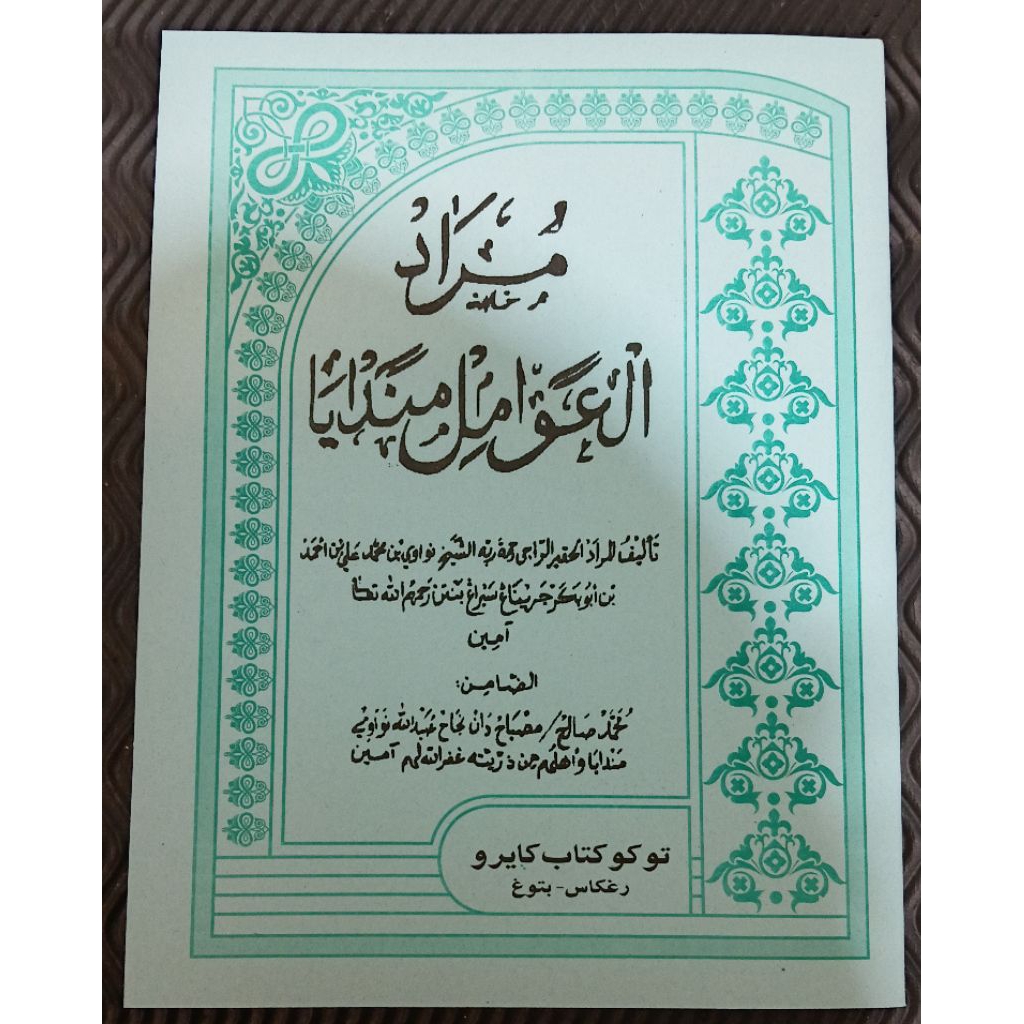 مُرَادْ
الْعَوَامِلْ مَنْدَايَا
تَأْلِيفُ المرَادْ الحقير الرّاجى رحمة ربّه الشّيخ نواوي بن محمّد علي بن احمَدْ
بن أبو بَكَرْ رحمهم الله تعَالى
آمِين
الضّامِن:
مُحَمَّدْ صَالِحْ / مصْبَاحْ دَانْ نجَاحْ عَبْدُ الله نوَاوِيْ
مَنْدَايَا وَاهلهُم مِن ذرّيته غفر الله لهم آمين
توكو كتاب كايرو
رغكاس - بتوغ